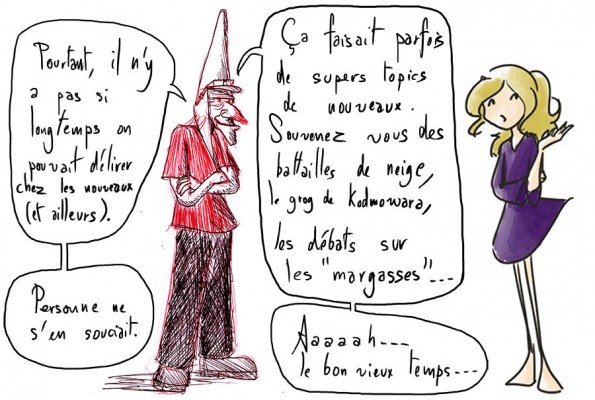 Pourtant, il n'y
a pas si
longtemps on
pouvait délirer
chez les nouveaux
(et ailleurs).
Personne ne
s'en souciait.
Ça faisait parfois
de supers topics
de nouveaux.
Souvenez vous des
battailles de neige,
le grog de Kodmowara,
les débats sur
les "margasses"---
Aaaaah---
le bon vieux temps---